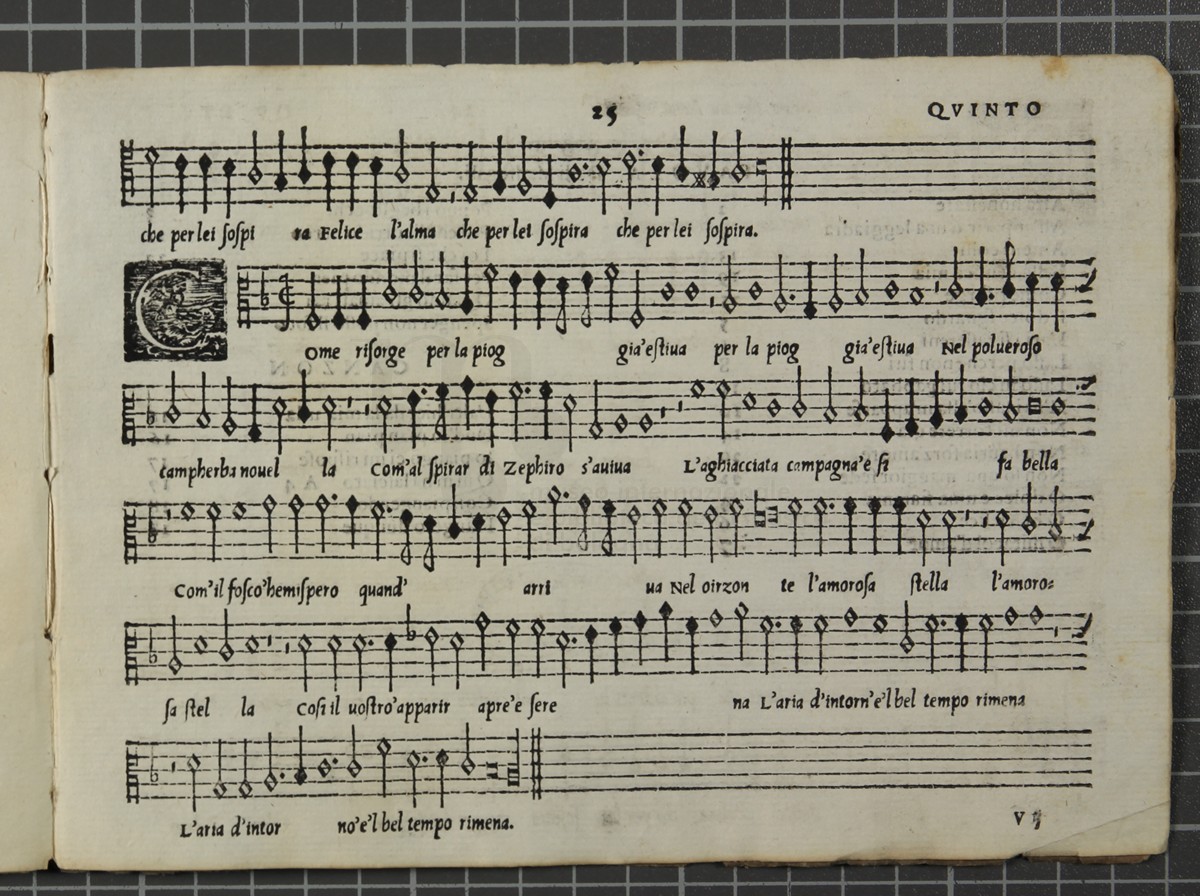 25 QVINTO
che per lei sospi ra Felice l'alma che per lei sospira che per lei sospira.
COme risorge per la piog gia'estiua per la piog gia'estiua Nel polueroso
camp herba nouel la Com'al spirar di Zephiro s'auiua L'aghiacciata campagna'e si fa bella
Com'il fosco'hemispero quand' arri ua Nel oirzon te l'amorosa stella l'amoro=
sa stel la Cosi il uostro'apparir apre'e sere na L'aria d'intorn'e'l bel tempo rimena
L'aria d'intor no'e'l bel tempo rimena.
V